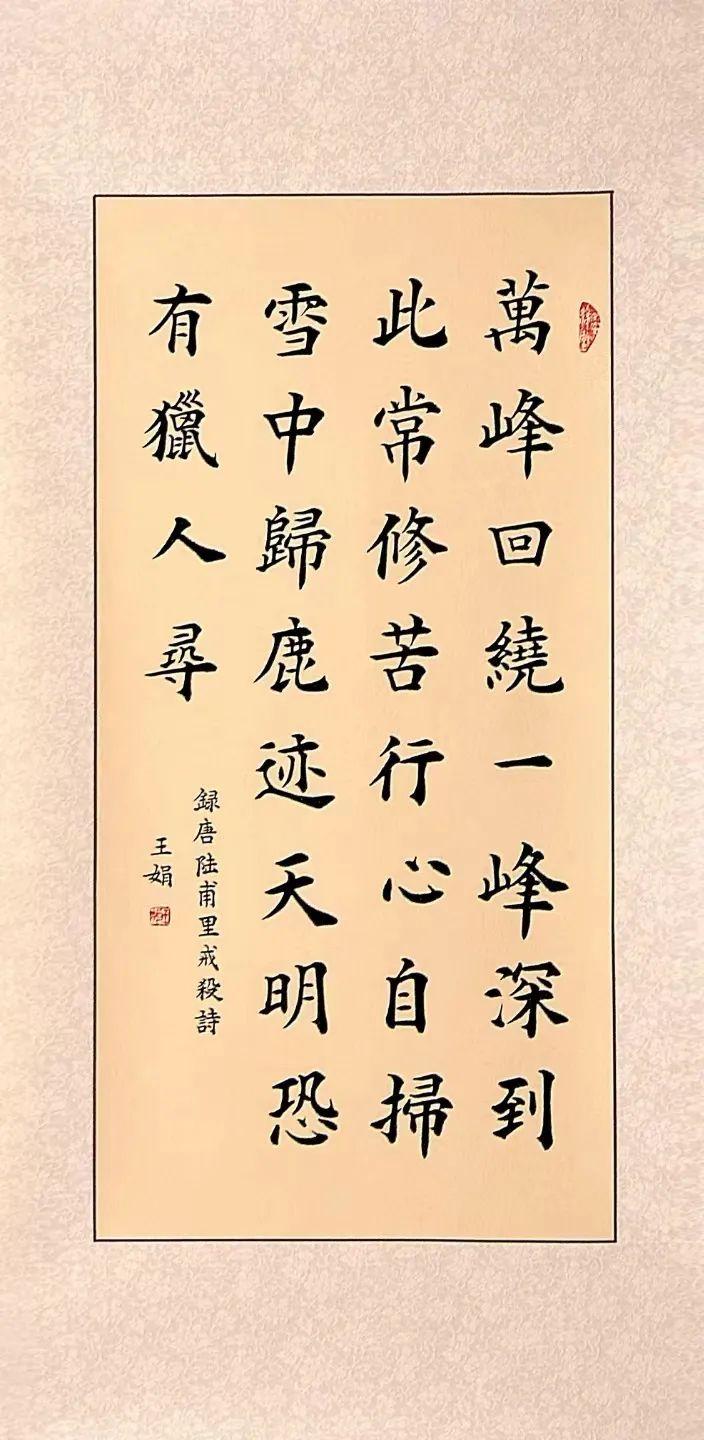 萬峰回繞一峰深到
此常修苦行心自掃
雪中歸鹿迹天明恐
有獵人尋
録唐陸甫里戒殺詩
王娟